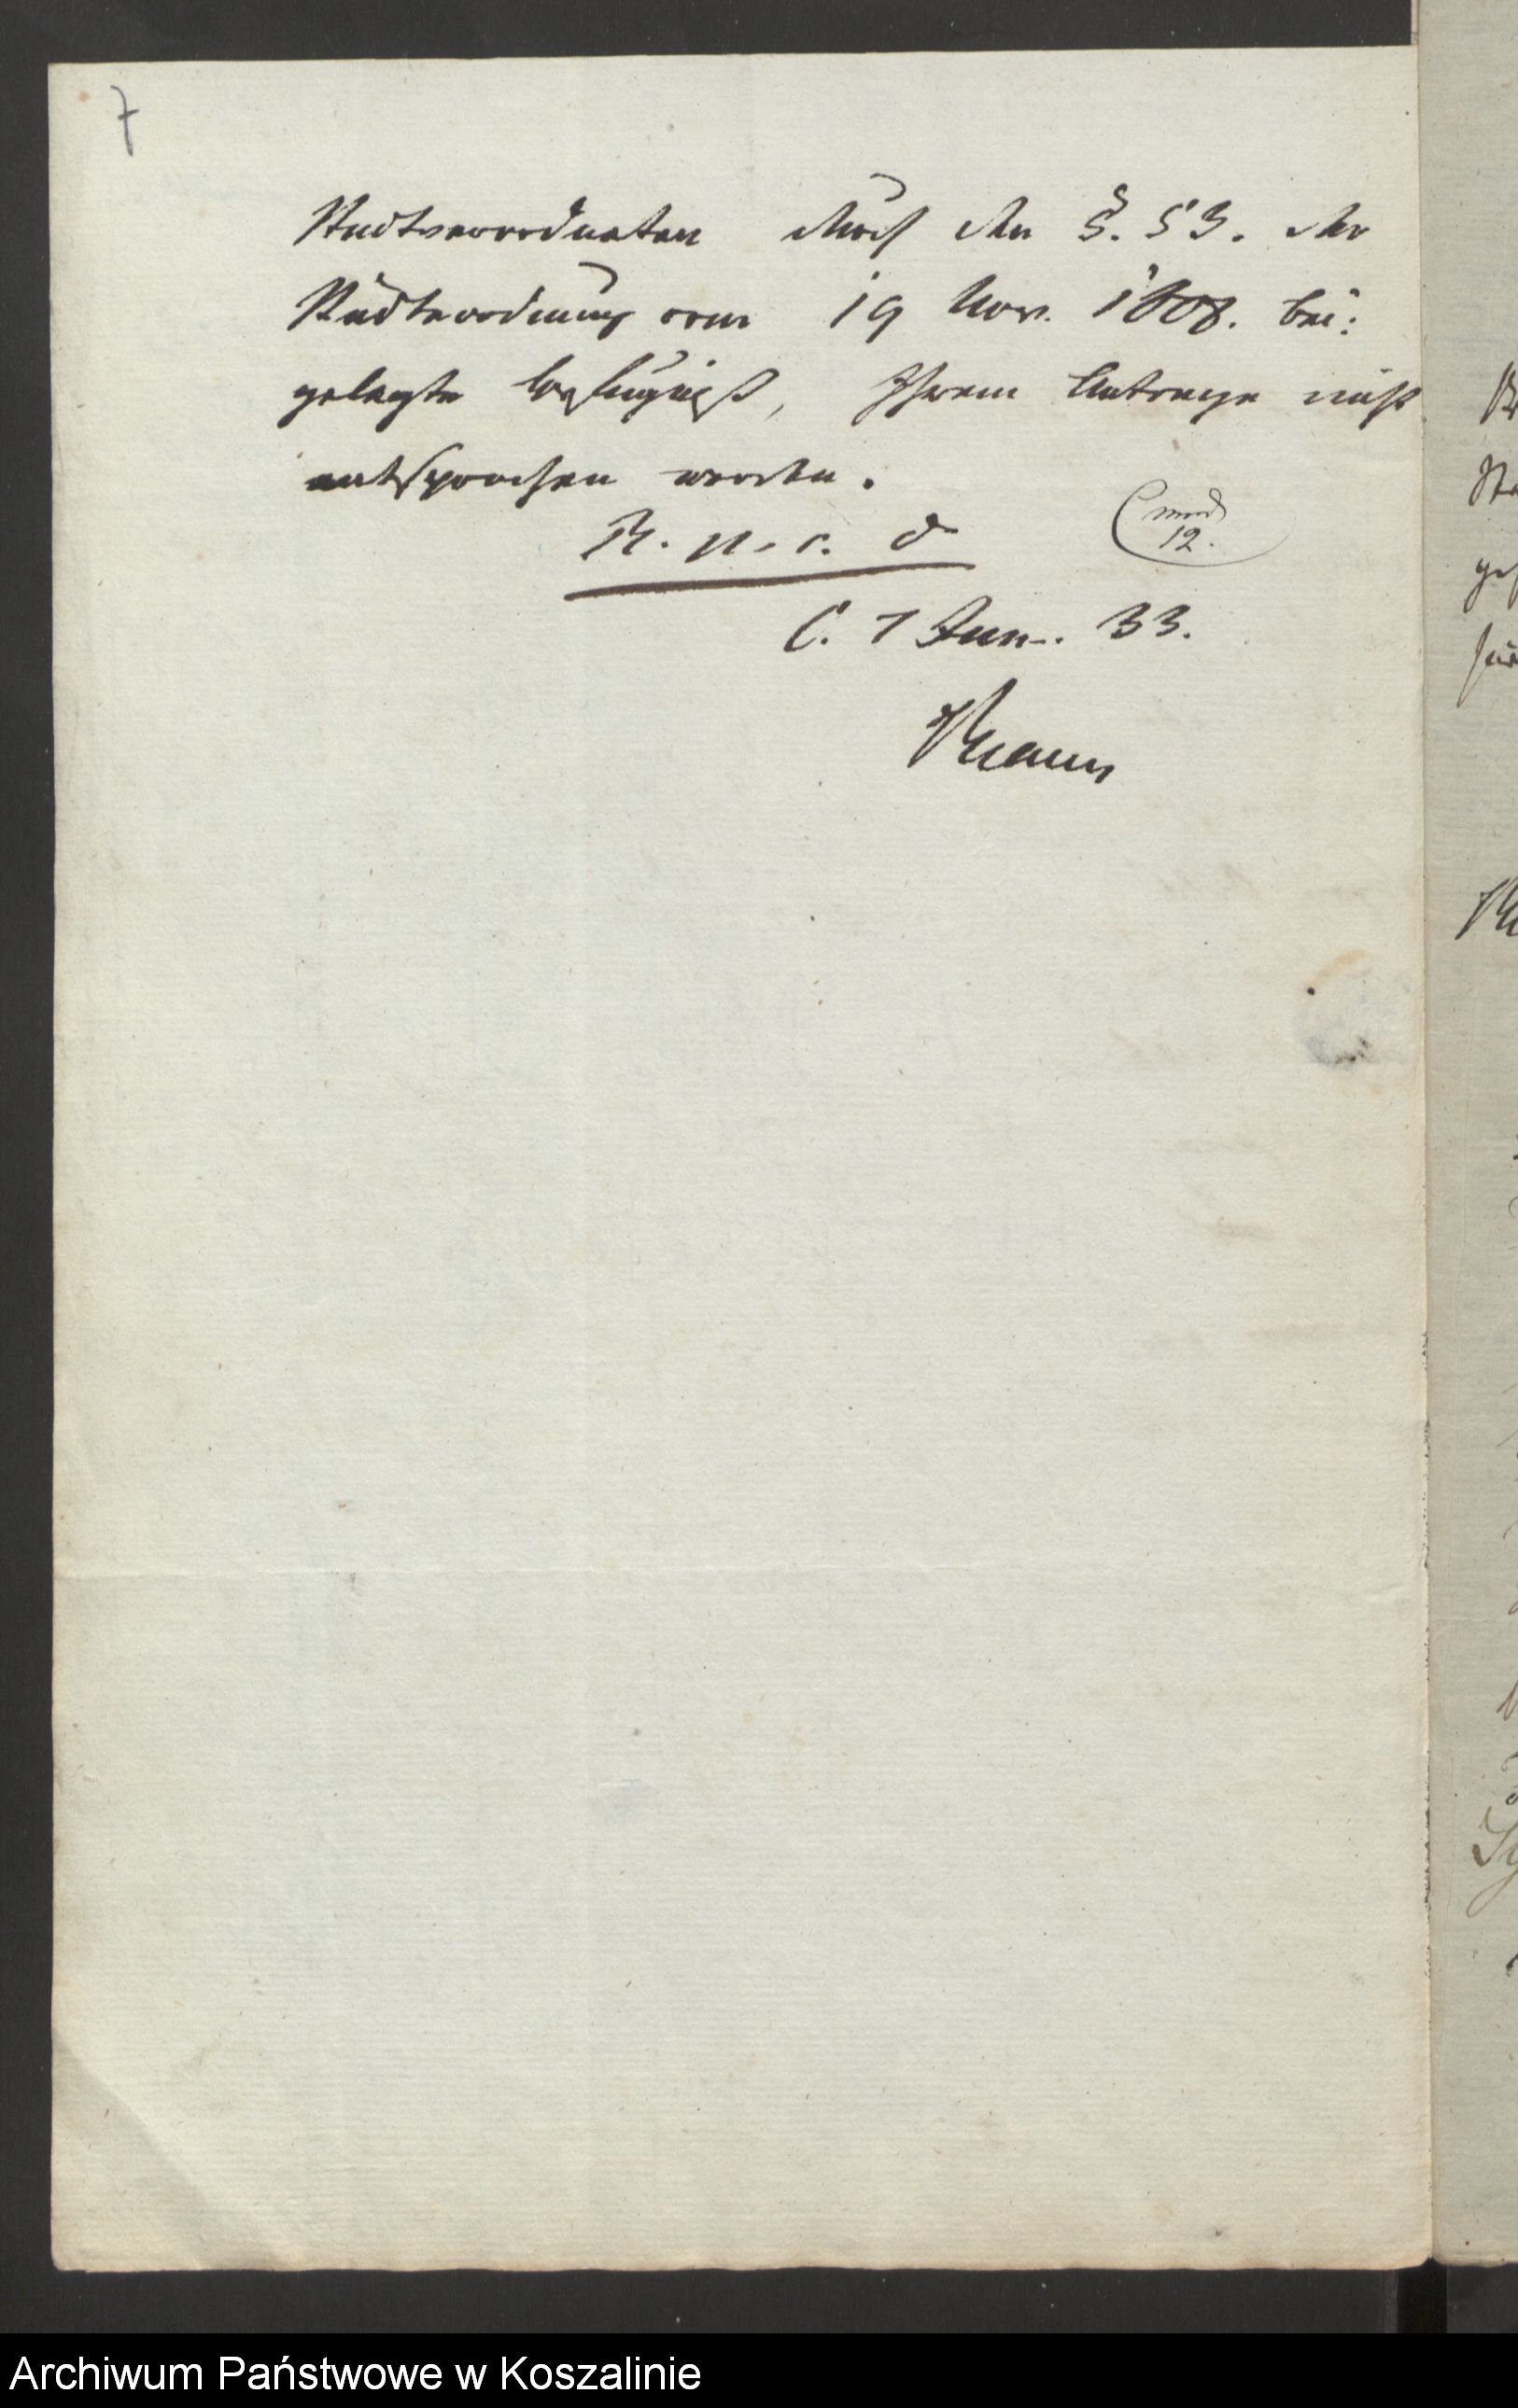 7
Stadtverordneten durch den §. 53. der
Städteordnung vom 19 Nov. 1808. bei:
gelegte Befugniß, Ihrem Antrage nicht
entsprochen werden.
12.
C. 7 Jan. 33.
Archiwum Państwowe w Koszalinie